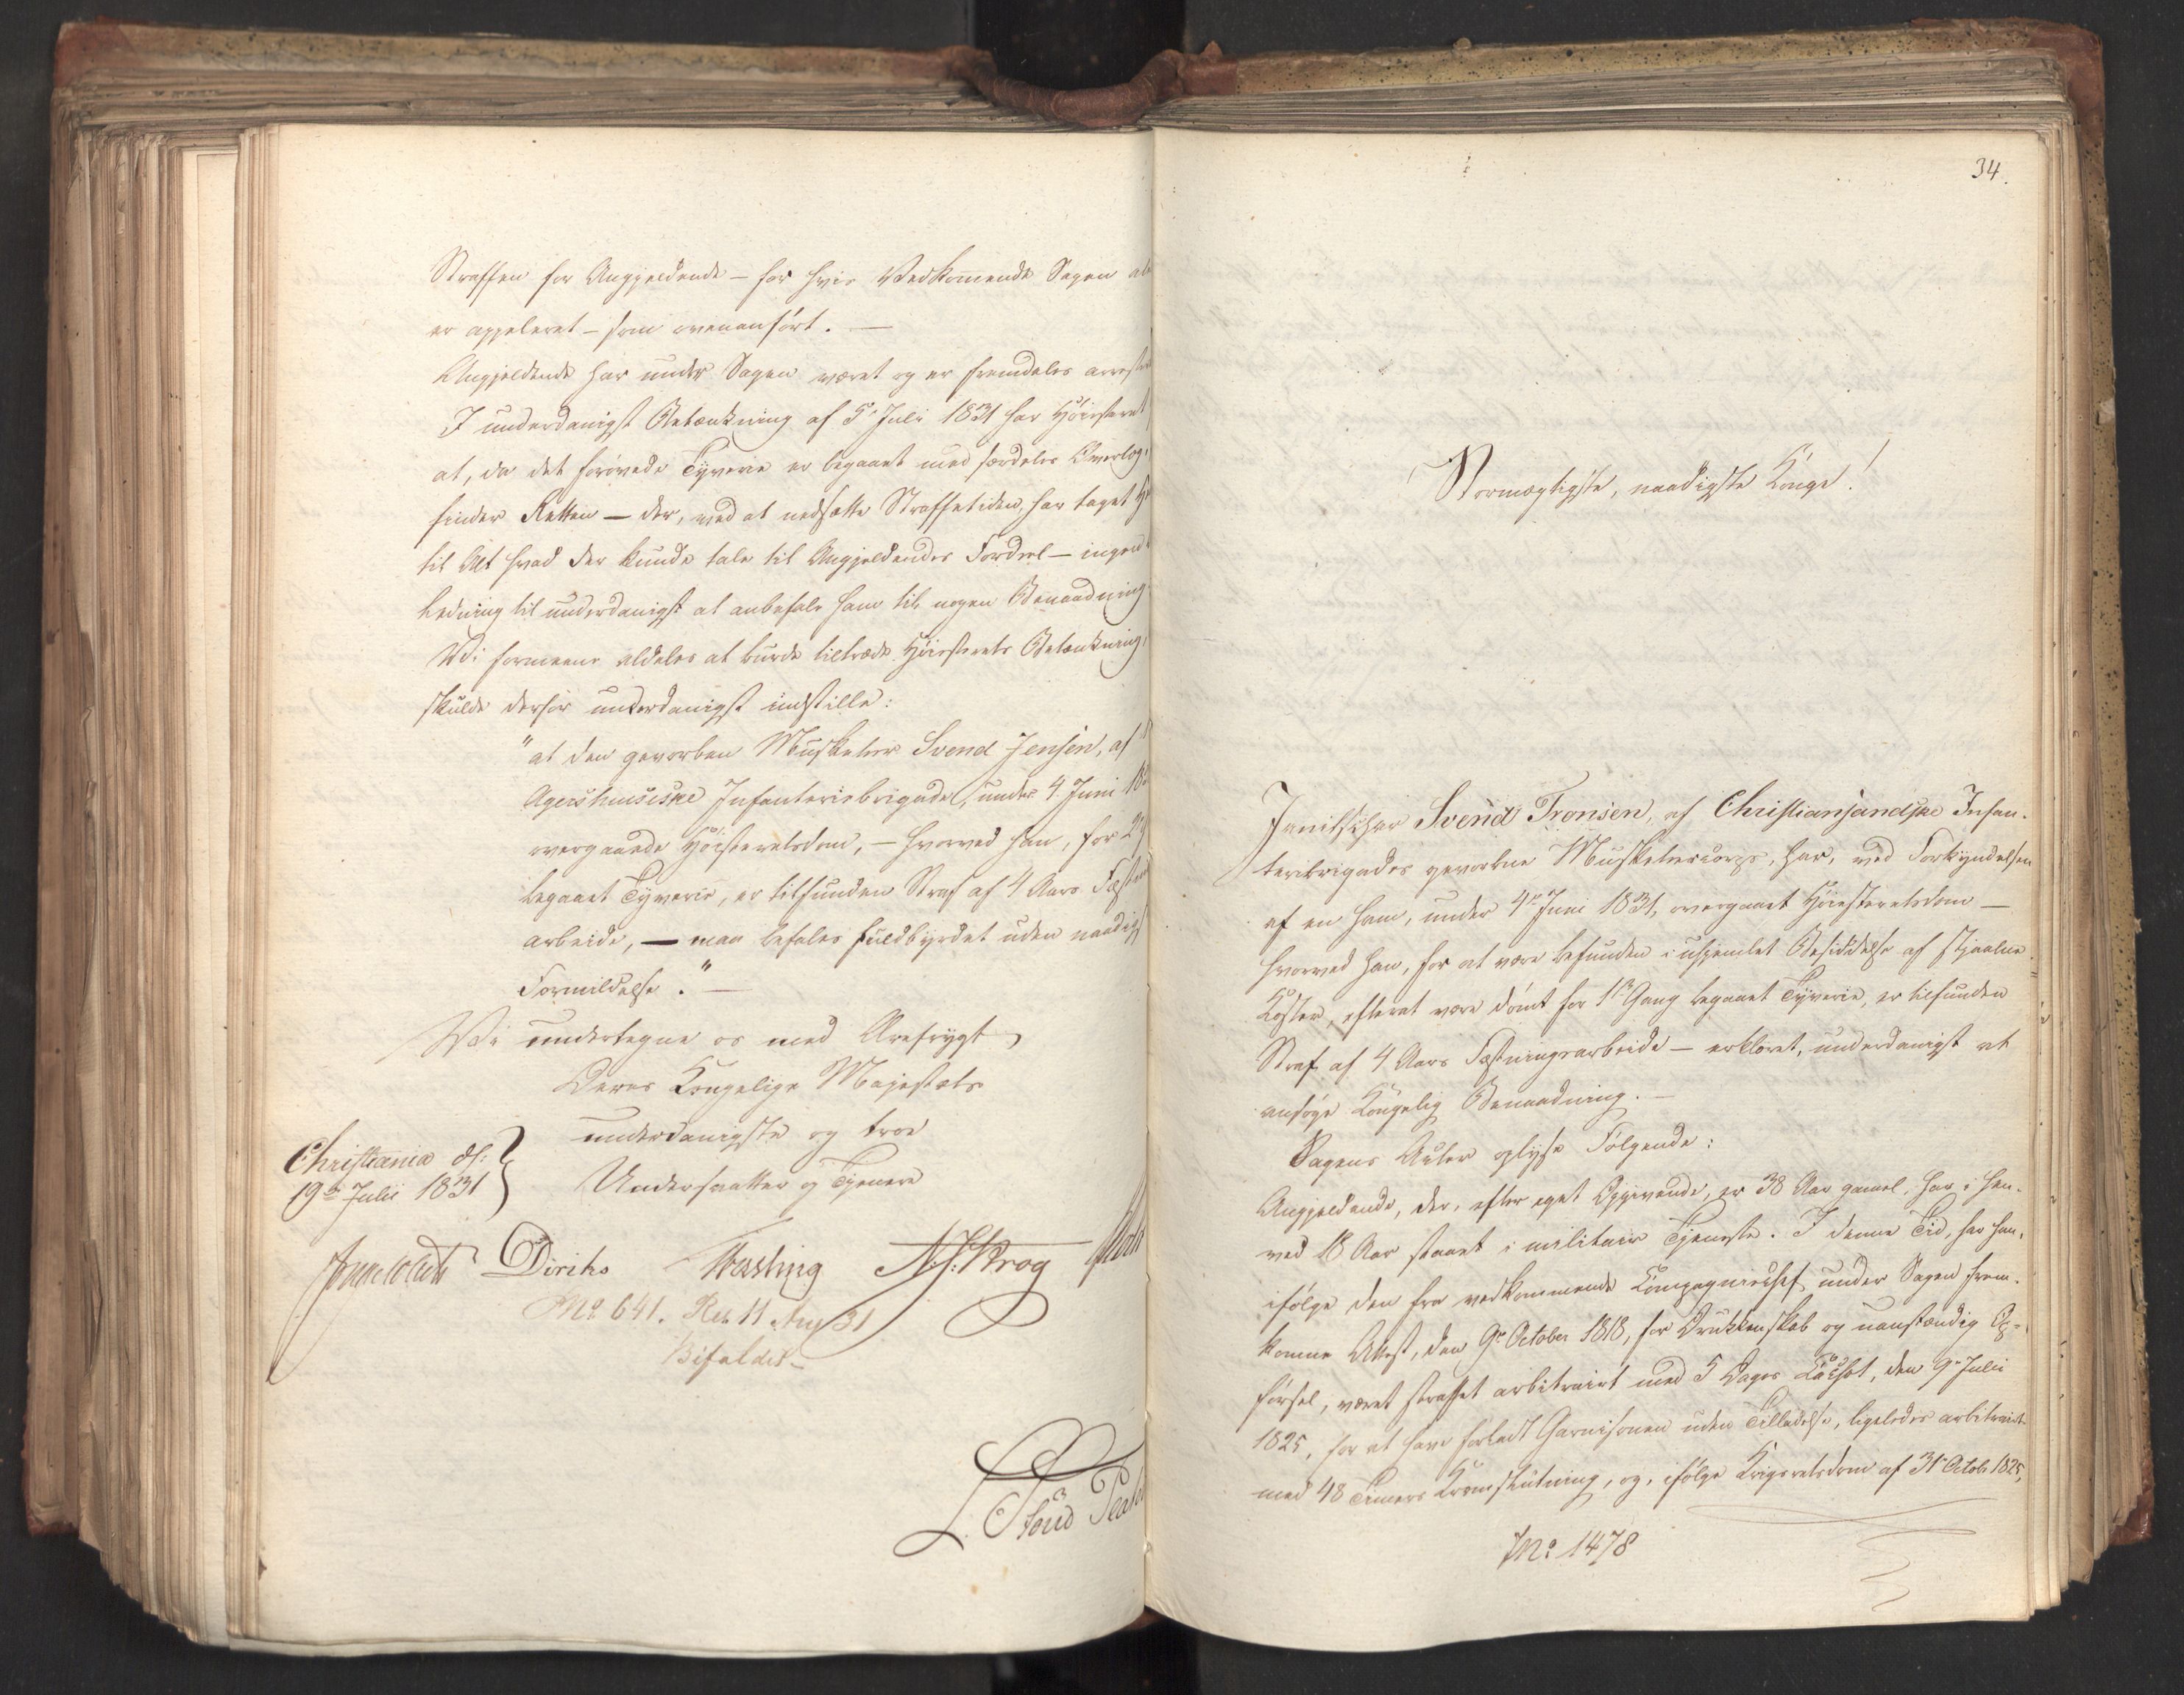 Straffen for Angjeldende – for hvis Vedkommende Sagen al
er appeleret – som ovenanført. —
Angjeldende har under Sagen været og er fremdeles arrest
I underdanigst Betænkning af 5te Juli 1831 har Høiesteret
at, da det forøvede Tyverie er begaaet med særdeles Overlæg,
finder Retten – der, ved at nedsætte Straffetiden, har taget H
til Alt hvad der kunde tale til Angjeldendes Fordeel – ingen
ledning til underdanigst at anbefale ham til nogen Benaadning.
Vi formeene aldeles at burde tiltræde Høiesterets Betænkning,
skulde derfor underdanigst indstille:
"at den gevorben Musketeer Svend Jensen, af
Agershuusiske Infanteriebrigade, under 4 Juni 18
overgaaede Høiesteretsdom, – hvorved han, for 2
begaaet Tyverie, er tilfunden Straf af 4 Aars Fæst
arbeide, – maa befales fuldbyrdet uden naadigst
Formildelse." —
Vi undertegne os med Ærefrygt
Deres Kongelige Majestæts
underdanigste og troe
Christiania d:
19de Julii 1831
Undersaatter og Tjenere
Diriks N. J. Krog
No 641. Res 11 Aug 31
Bifaldet –
34.
Stormægtigste, naadigste Konge!
Janitschar Svend Tronsen, af Christiansandske Infan-
teribrigades gevorbne Musketeercorps, har, ved Forkyndelsen
af en ham, under 4de Juni 1831, overgaaet Høiesteretsdom —
hvorved han, for at være befunden i uhjemlet Besiddelse af stjaalne
Koster, efterat være dømt for 1ste Gang begaaet Tyverie, er tilfunden
Straf af 4 Aars Fæstningsarbeide – erklæret, underdanigst at
ansøge Kongelig Benaadning. —
Sagens Acter oplyse Følgende:
Angjeldende, der, efter eget Opgivende, er 38 Aar gamel, har i hen-
ved 18 Aar staaet i militair Tjeneste. I denne Tid, har han,
ifølge den fra vedkommende Compagniechef under Sagen frem-
komne Attest, den 9de October 1818, for Drukkenskab og uanstændig Op-
førsel, været straffet arbitrairt med 5 Dages Cachot, den 9de Julii
1825, for at have forladt Garnisonen uden Tilladelse, ligeledes arbitrairt
med 48 Timers Krumslutning, og, ifølge Krigsretsdom af 31te Octob: 1825,
No 1478